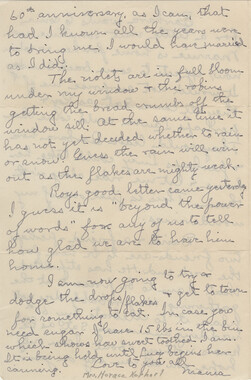 60th anniversary, as I can, that
had I known all the years were
to bring me, I would have married
as I did.
The violets are in full bloom
under my window & the robins
getting the bread crumbs off the
window sill. At the same time it
has not yet decided whether to rain
or snow. Guess the rain will win
out as the flakes are mighty weak.
Roy's good letter came yesterday
I guess it is "beyond the power
of words" for any of us to tell
how glad we are to have him
home.
I am now going to try &
dodge the drops & flakes & get to town
for something to eat. In case you
need sugar I have 15 lbs in the bin,
which shows how sweet toothed I am.
It is being held until Lucy begins her
canning.
Love to you all
Mrs. Horace